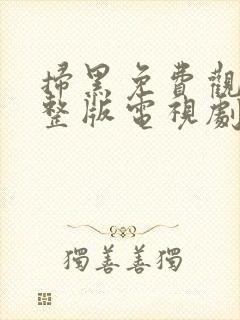 掃黑免費觀
整版電視劇
獨善善獨